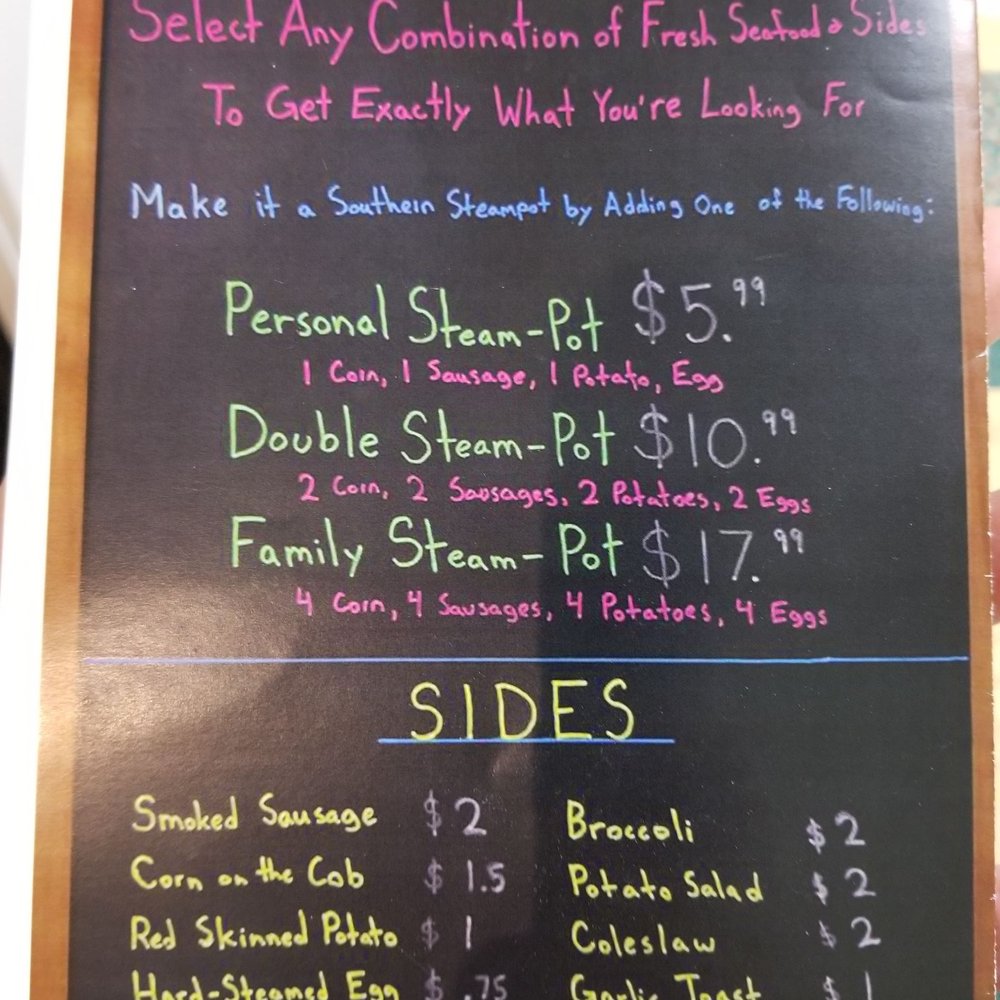 Select Any Combination of Fresh Seafood & Sides
To Get Exactly What You're Looking For
Make it a Southern Steampot by Adding One of the Following:
Personal Steam-Pot $5.99
1 Corn, 1 Sausage, 1 Potato, Egg
Double Steam-Pot $10.99
2 Corn, 2 Sausages, 2 Potatoes, 2 Eggs
Family Steam-Pot $17.99
4 Corn, 4 Sausages, 4 Potatoes, 4 Eggs
SIDES
Smoked Sausage $2 Broccoli $2
Corn on the Cob $1.5 Potato Salad $2
Red Skinned Potato $1 Coleslaw $2
Hard-Steamed Egg $.75 Garlic Toast $1